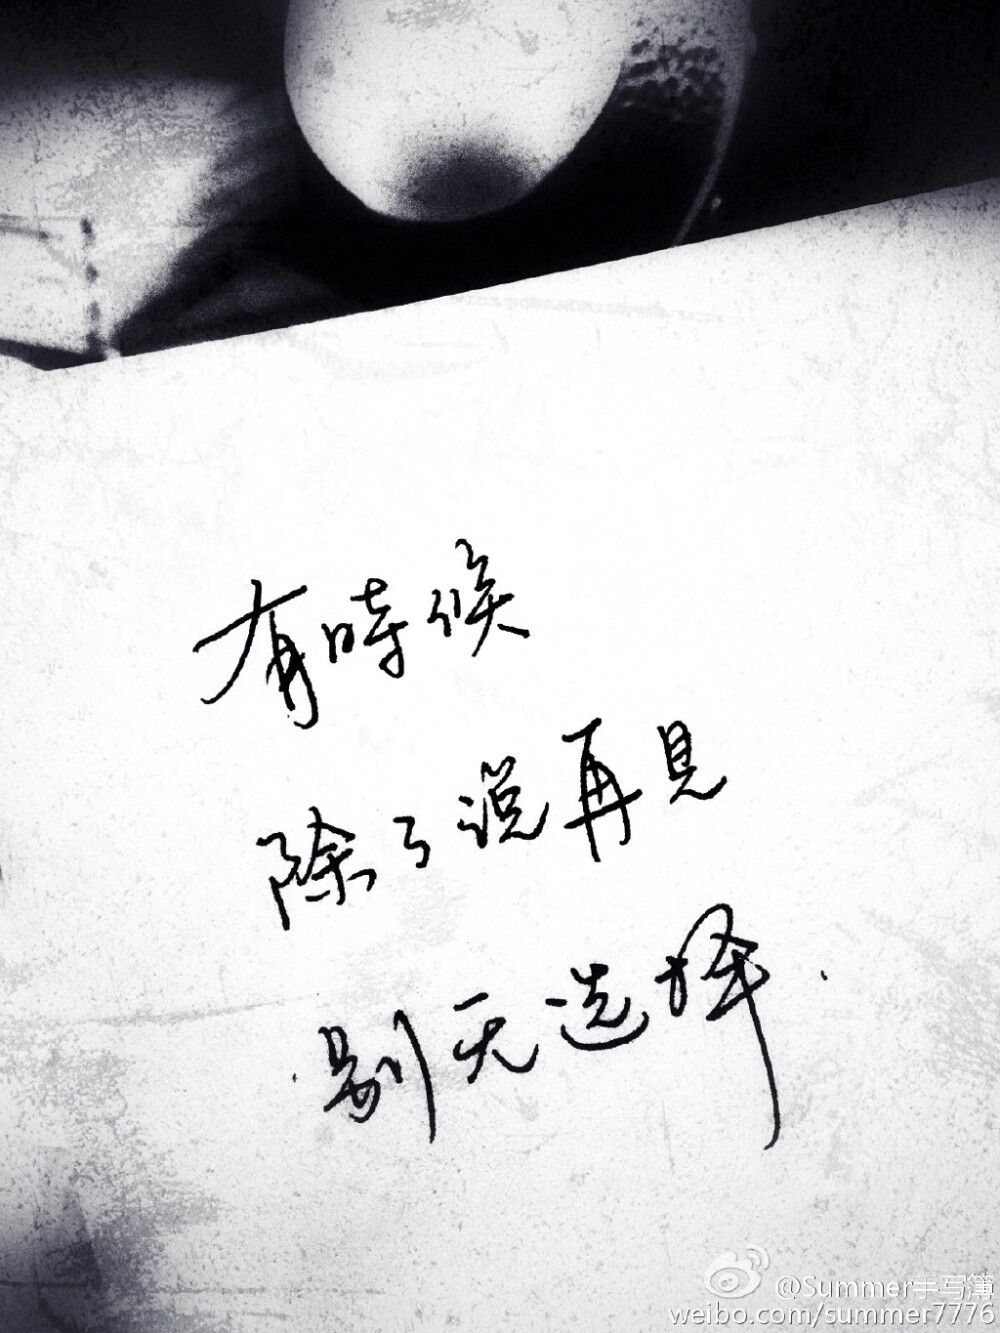 有時候
除了说再见
别无选择.
@Summer手写簿
weibo.com/summer7776